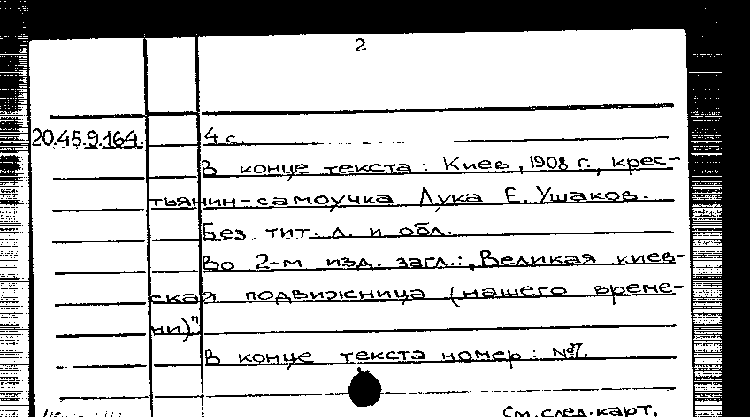 2
20.45.9.164. 4 с.
В конце текста: Киев, 1908 г., крес-
тьянин-самоучка Лука Е. Ушаков.
Без тит. л. и обл.
Во 2-м изд. загл.: „Великая киев-
ская подвижница (нашего време-
ни)".
В конце текста номер: №37.
См. след. карт.